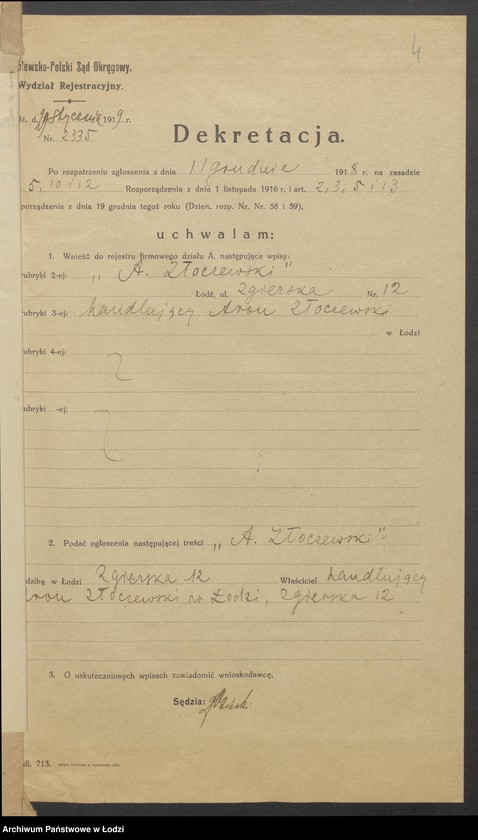 4
lewsko-Polski Sąd Okręgowy.
Wydział Rejestracyjny.
dź, d. stycznia 1919 r.
Nr. 2335
Dekretacja.
Po rozpatrzeniu zgłoszenia z dnia 11 grudnia 1918 r. na zasadzie
5, 10 i 12 Rozporządzenia z dnia 1 listopada 1916 r. i art. 2, 3, 5 i 13
porządzenia z dnia 19 grudnia tegoż roku (Dzien. rozp. Nr. Nr. 58 i 59),
uchwalam:
1. Wnieść do rejestru firmowego działu A. następujące wpisy:
ubryki 2-ej: „A. Złoczewski”
Łódź, ul. Zgierska Nr. 12
ubryki 3-ej: handlujący Aron Złoczewski
w Łodzi
ubryki 4-ej:
ubryki -ej:
2. Podać ogłoszenia następującej treści „A. Złoczewski”
dzibą w Łodzi Zgierska 12 Właściciel handlujący
Aron Złoczewski w Łodzi, Zgierska 12
3. O uskutecznionych wpisach zawiadomić wnioskodawcę.
Sędzia:
dl. 713.
Archiwum Państwowe w Łodzi